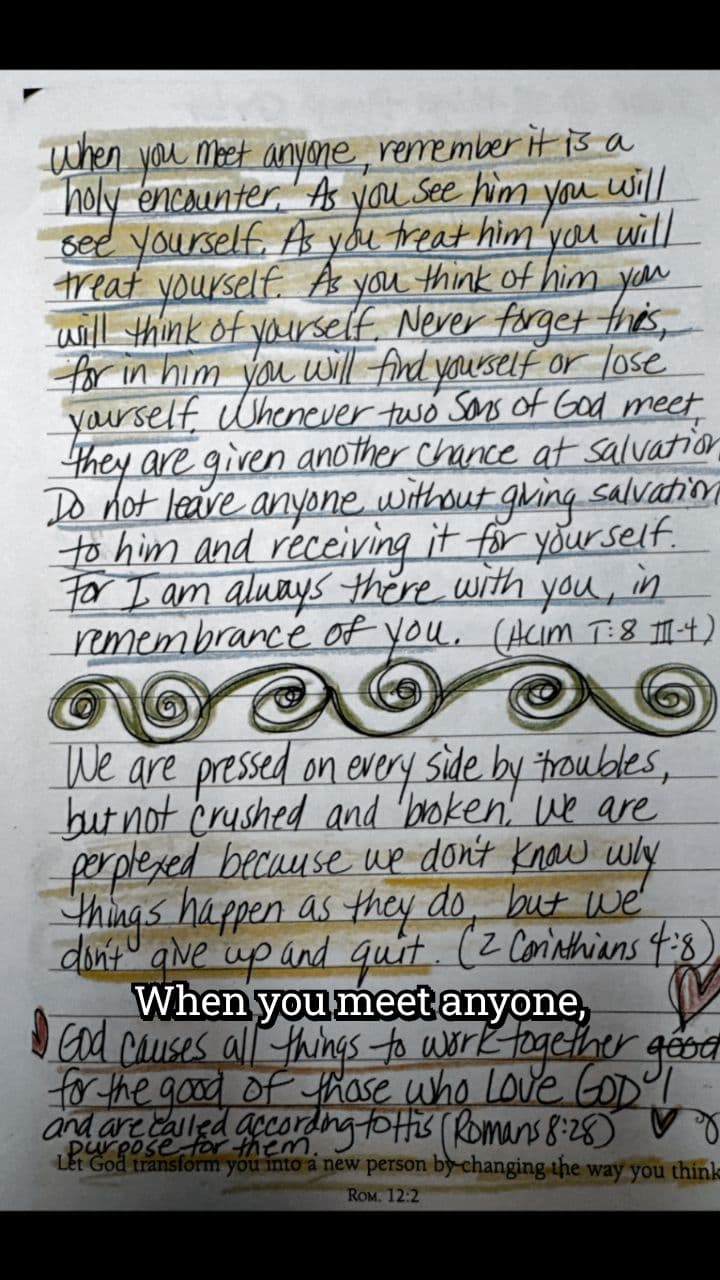 When you meet anyone, remember it is a
holy encounter. As you see him you will
see yourself. As you treat him you will
treat yourself. As you think of him you
will think of yourself. Never forget this,
for in him you will find yourself or lose
yourself. Whenever two Sons of God meet,
they are given another chance at salvation
Do not leave anyone without giving salvation
to him and receiving it for yourself.
For I am always there with you, in
remembrance of you. (ACIM T:8 III-4)
We are pressed on every side by troubles,
but not crushed and broken. We are
perplexed because we don't know why
things happen as they do, but we
don't give up and quit. (2 Corinthians 4:8)
When you meet anyone,
God causes all things to work together good
for the good of those who Love GOD
and are called according to His (Romans 8:28)
purpose for them.
Let God transform you into a new person by changing the way you think
ROM. 12:2